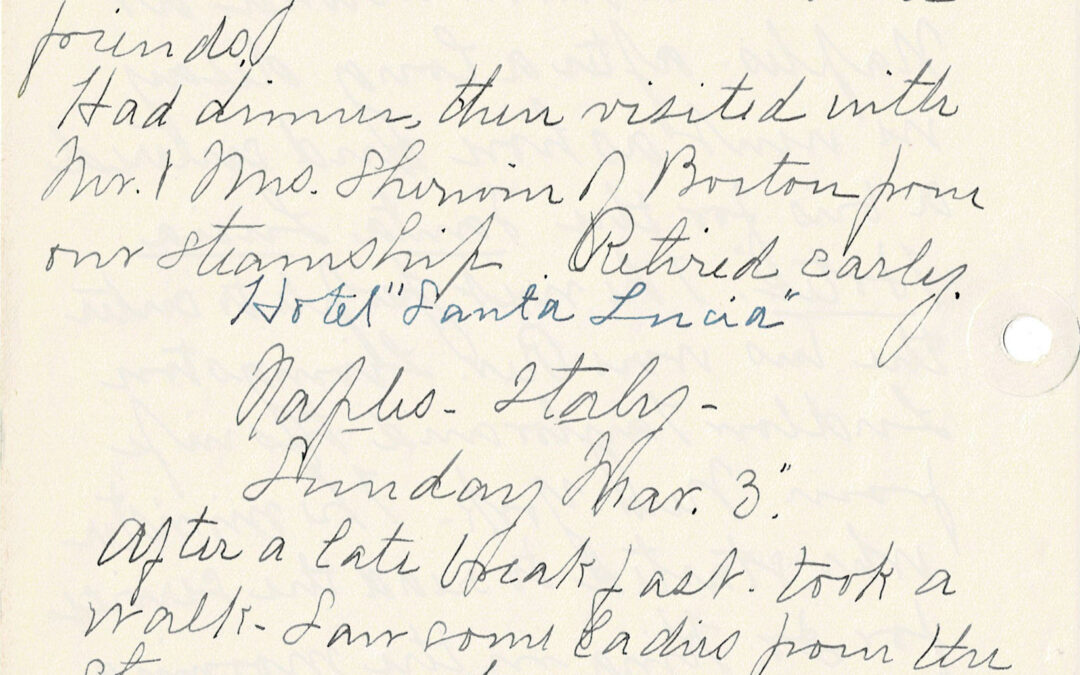 friends.
Had dinner, then visited with
Mr. & Mrs. Sherwin of Boston from
our steamship. Retired early.
Hotel "Santa Lucia"
Naples - Italy -
Sunday Mar. 3"
After a late breakfast. took a
walk - Saw some ladies from the